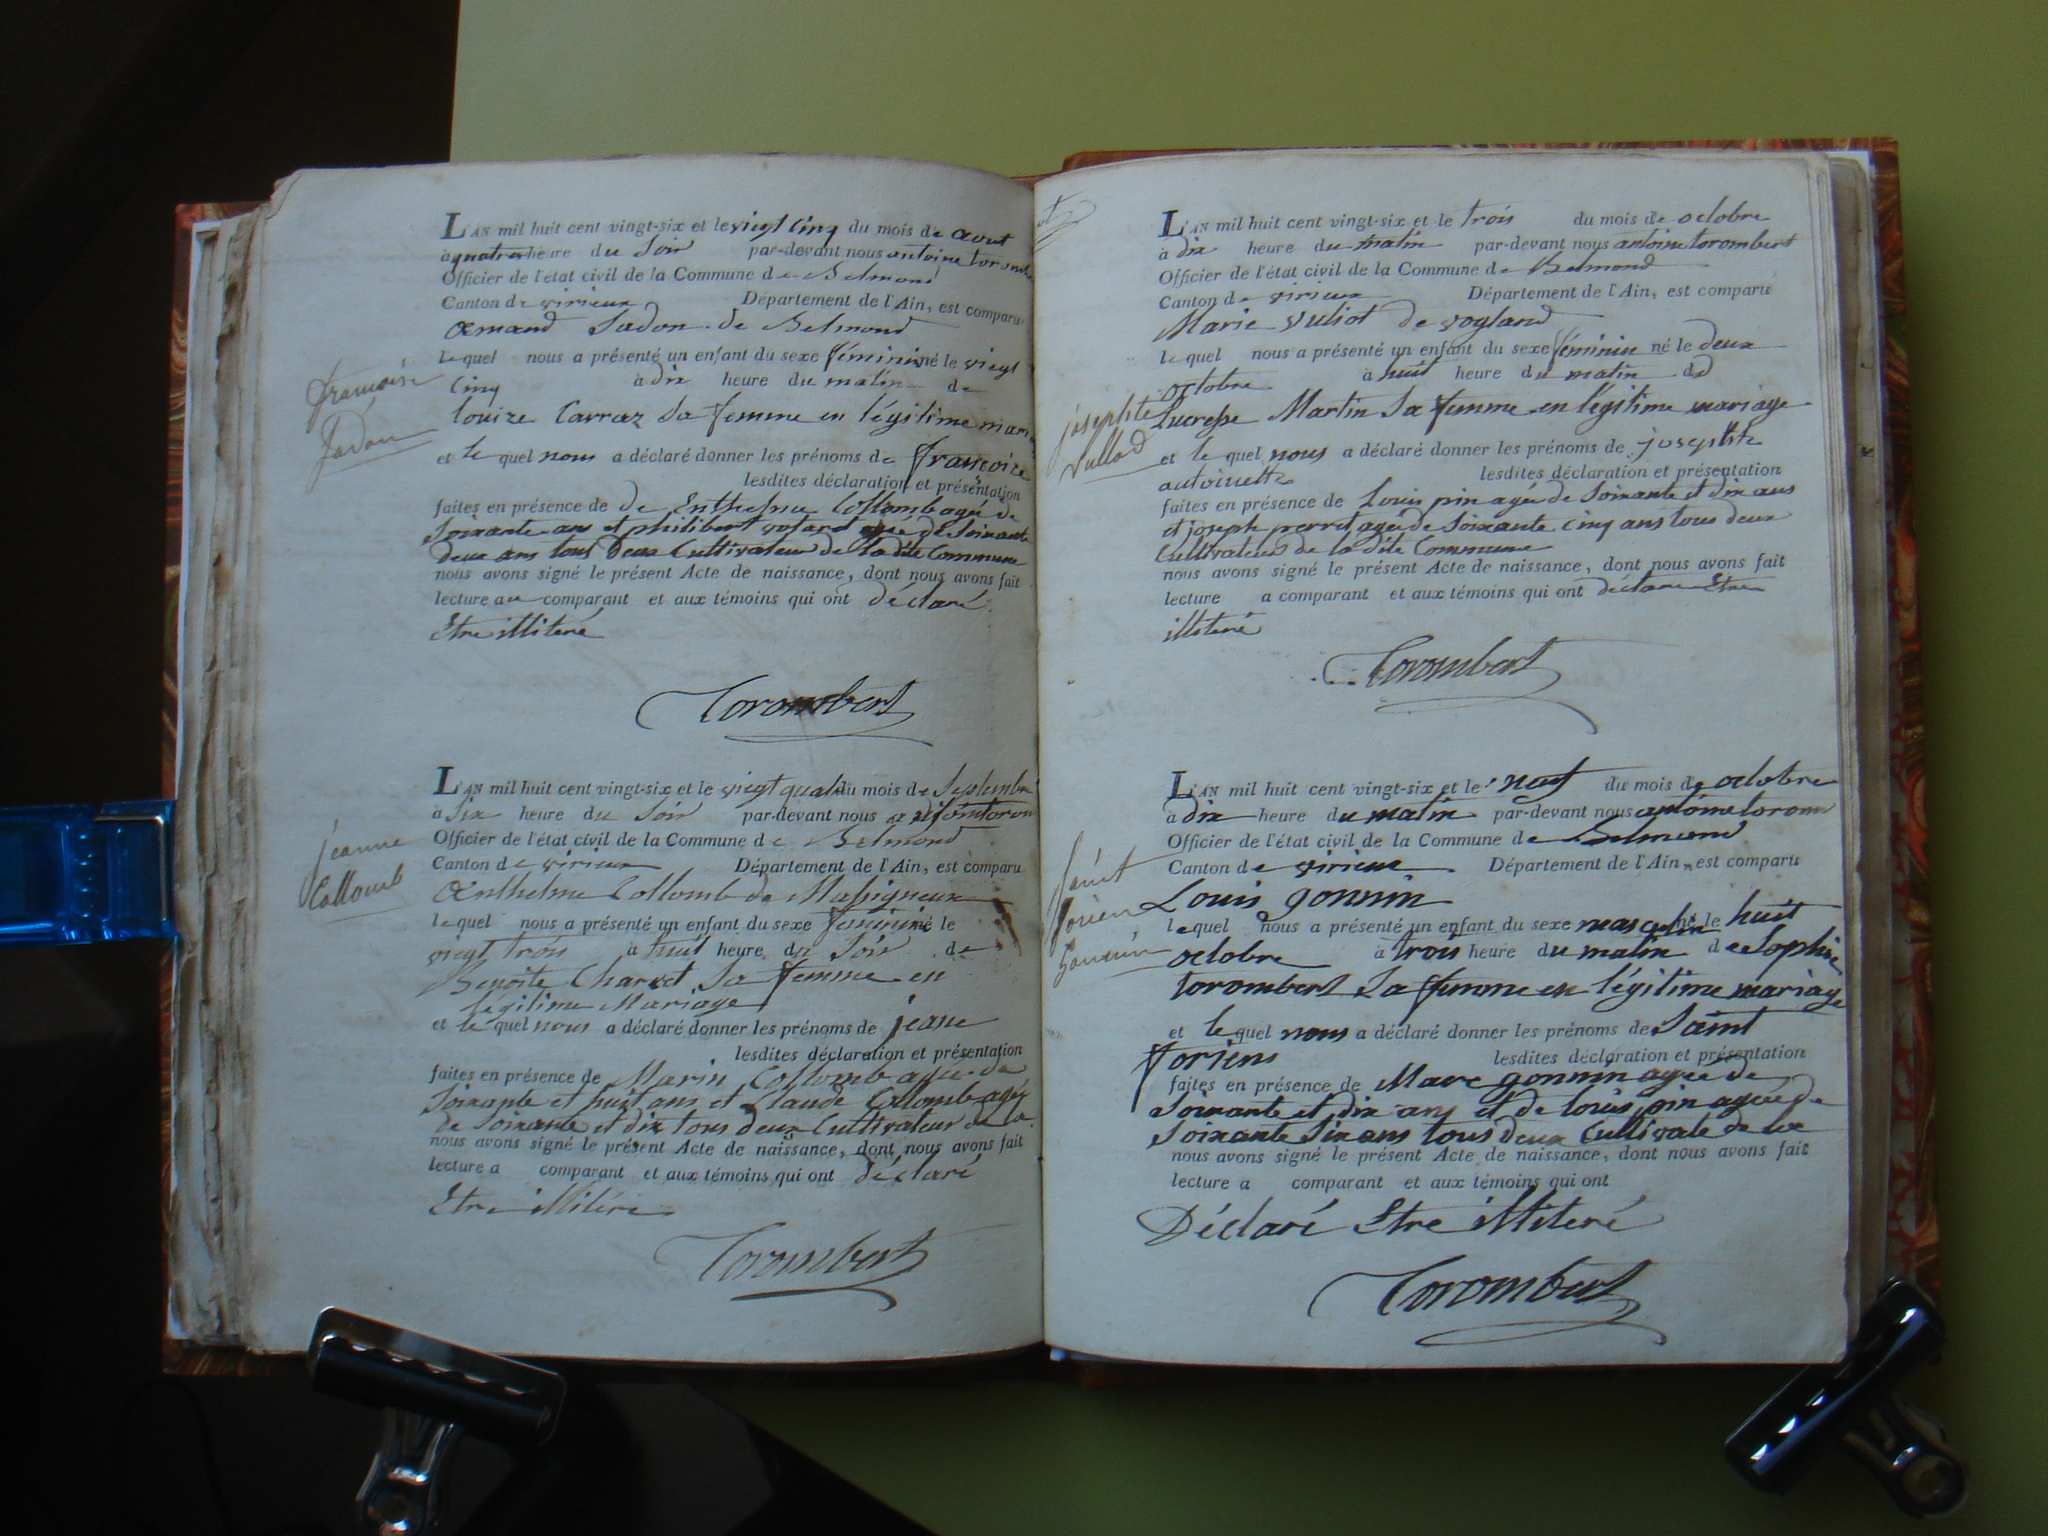 L'AN mil huit cent vingt-six et le vieigt cinq du mois de aout
à quatres heure du Soir par-devant nous antoine
Officier de l'état civil de la Commune de Belmond
Canton de virieux Département de l'Ain, est comparu
Amand Jadon de Belmond
lequel nous a présenté un enfant du sexe féminin né le vieigt
Cinq à dix heure du matin de
françoise
Jadon
louize Carraz Sa femme en légitime
et le quel nous a déclaré donner les prénoms de françoize
lesdites déclaration et présentation
faites en présence de de Enthelme Collomb ageé de
Soixante ans et philibert ageé de Soixante
deux ans tous deux Cultivateur de la dite Commune
nous avons signé le présent Acte de naissance, dont nous avons fait
lecture au comparant et aux témoins qui ont déclaré
Etre illiteré
Torombert
L'AN mil huit cent vingt-six et le du mois de Septembre
à Six heure du Soir par-devant nous
Officier de l'état civil de la Commune de Belmond
jeanne
Collomb
Canton de virieux Département de l'Ain, est comparu
Anthelme Collomb de Massigneux
lequel nous a présenté un enfant du sexe feminin né le
vieigt trois à huit heure du Soir de
Benoite Charvet Sa femme en
légitime Mariage
et le quel nous a déclaré donner les prénoms de jeane
lesdites déclaration et présentation
faites en présence de Marin Collomb ageé de
Soixante et huit ans et Claude Colomb ageé
de Soixante et dix tous deux Cultivateur de la
nous avons signé le présent Acte de naissance, dont nous avons fait
lecture a comparant et aux témoins qui ont déclaré
Etre illitére
Torombert
L'AN mil huit cent vingt-six et le trois du mois de octobre
à dix heure du matin par-devant nous antoine torombert
Officier de l'état civil de la Commune de Belmond
Canton de virieux Département de l'Ain, est comparu
Marie vuliot de vogland
lequel nous a présenté un enfant du sexe féminin né le deux
octobre à huit heure du matin de
josephte
Vullod
Lucresse Martin Sa femme en légitime mariage
et le quel nous a déclaré donner les prénoms de josephte
antoinette lesdites déclaration et présentation
faites en présence de Louis pin ageé de Soixante et dix ans
et joseph perret ageé de Soixante Cinq ans tous deux
Cultivateurs de la dite Commune
nous avons signé le présent Acte de naissance, dont nous avons fait
lecture a comparant et aux témoins qui ont déclare Etre
illiteré
Torombert
L'AN mil huit cent vingt-six et le neuf du mois de octobre
à dix heure du matin par-devant nous antoine torom
Officier de l'état civil de la Commune de Belmond
Canton de virieux Département de l'Ain, est comparu
Saint
forien
Gonnin
Louis gonnin
lequel nous a présenté un enfant du sexe masculin né le huit
octobre à trois heure du matin de Sophie
torombert Sa femme en légitime mariage
et le quel nous a déclaré donner les prénoms de Saint
foriens lesdites déclaration et présentation
faites en présence de Marc gonnin ageé de
Soixante et dix ans et de louis pin ageé de
Soixante Six ans tous deux Cultivate de la
nous avons signé le présent Acte de naissance, dont nous avons fait
lecture a comparant et aux témoins qui ont
Déclaré Etre illiteré
Torombert